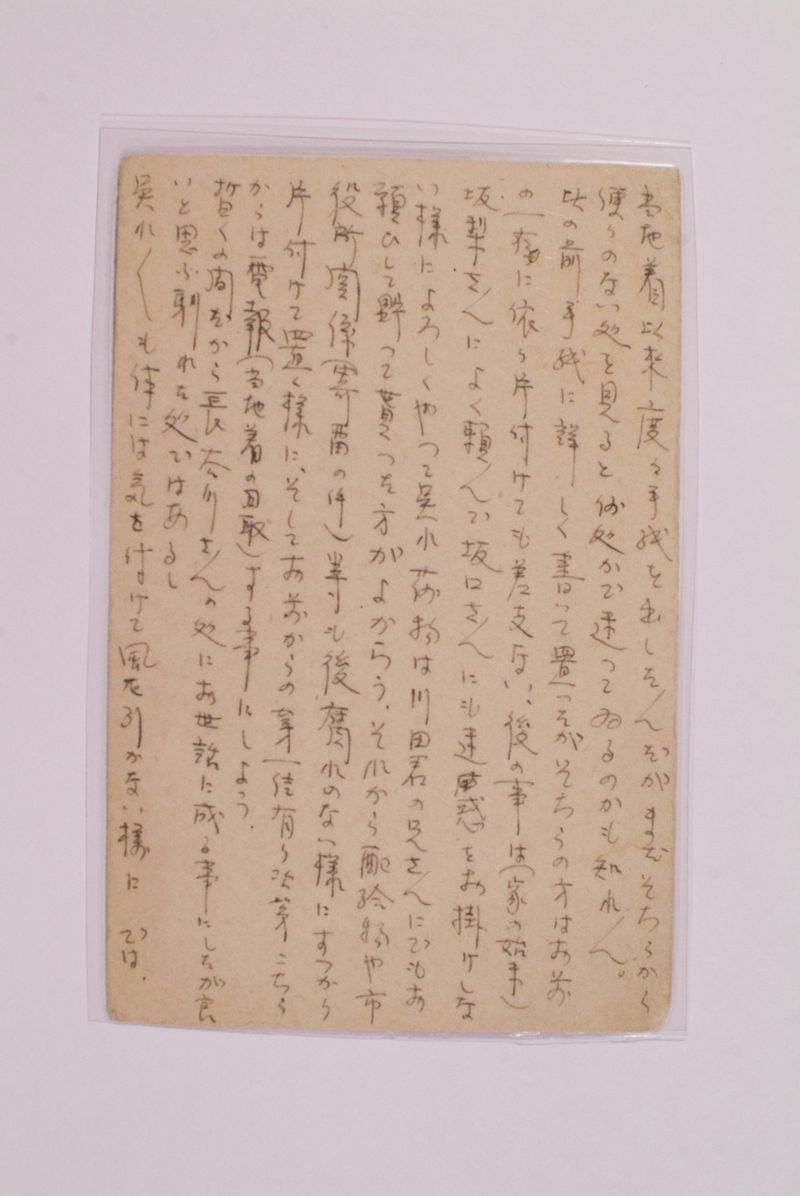 当地着以来度々手紙を出したんだがまだそちらから
便りのない処を見ると何処かで迷つてゐるのかも知れん。
此の前手紙に詳しく書いて置いたがそちらの方はお前
の一存に依り片付けても差支ない、後の事は(家の始末)
坂梨さんによく頼んで坂口さんにも迷惑をお掛けしな
い様によろしくやつて呉れ 荷物は川田君の兄さんにでもお
頼ひして野つて貰つた方がよからう、それから配給物や市
役所関係(寄留の件)等も後腐れのない様にすつかり
片付けて置く様に、そしてお前からの第一信有り次第こちら
からは電報(当地着の日取)する事にしよう。
暫くの間だから長谷川さんの処にお世話に成る事にしたが良
いと思ふ 馴れた処ではあるし
呉れ〱も体には気を付けて風を引かない様に では.